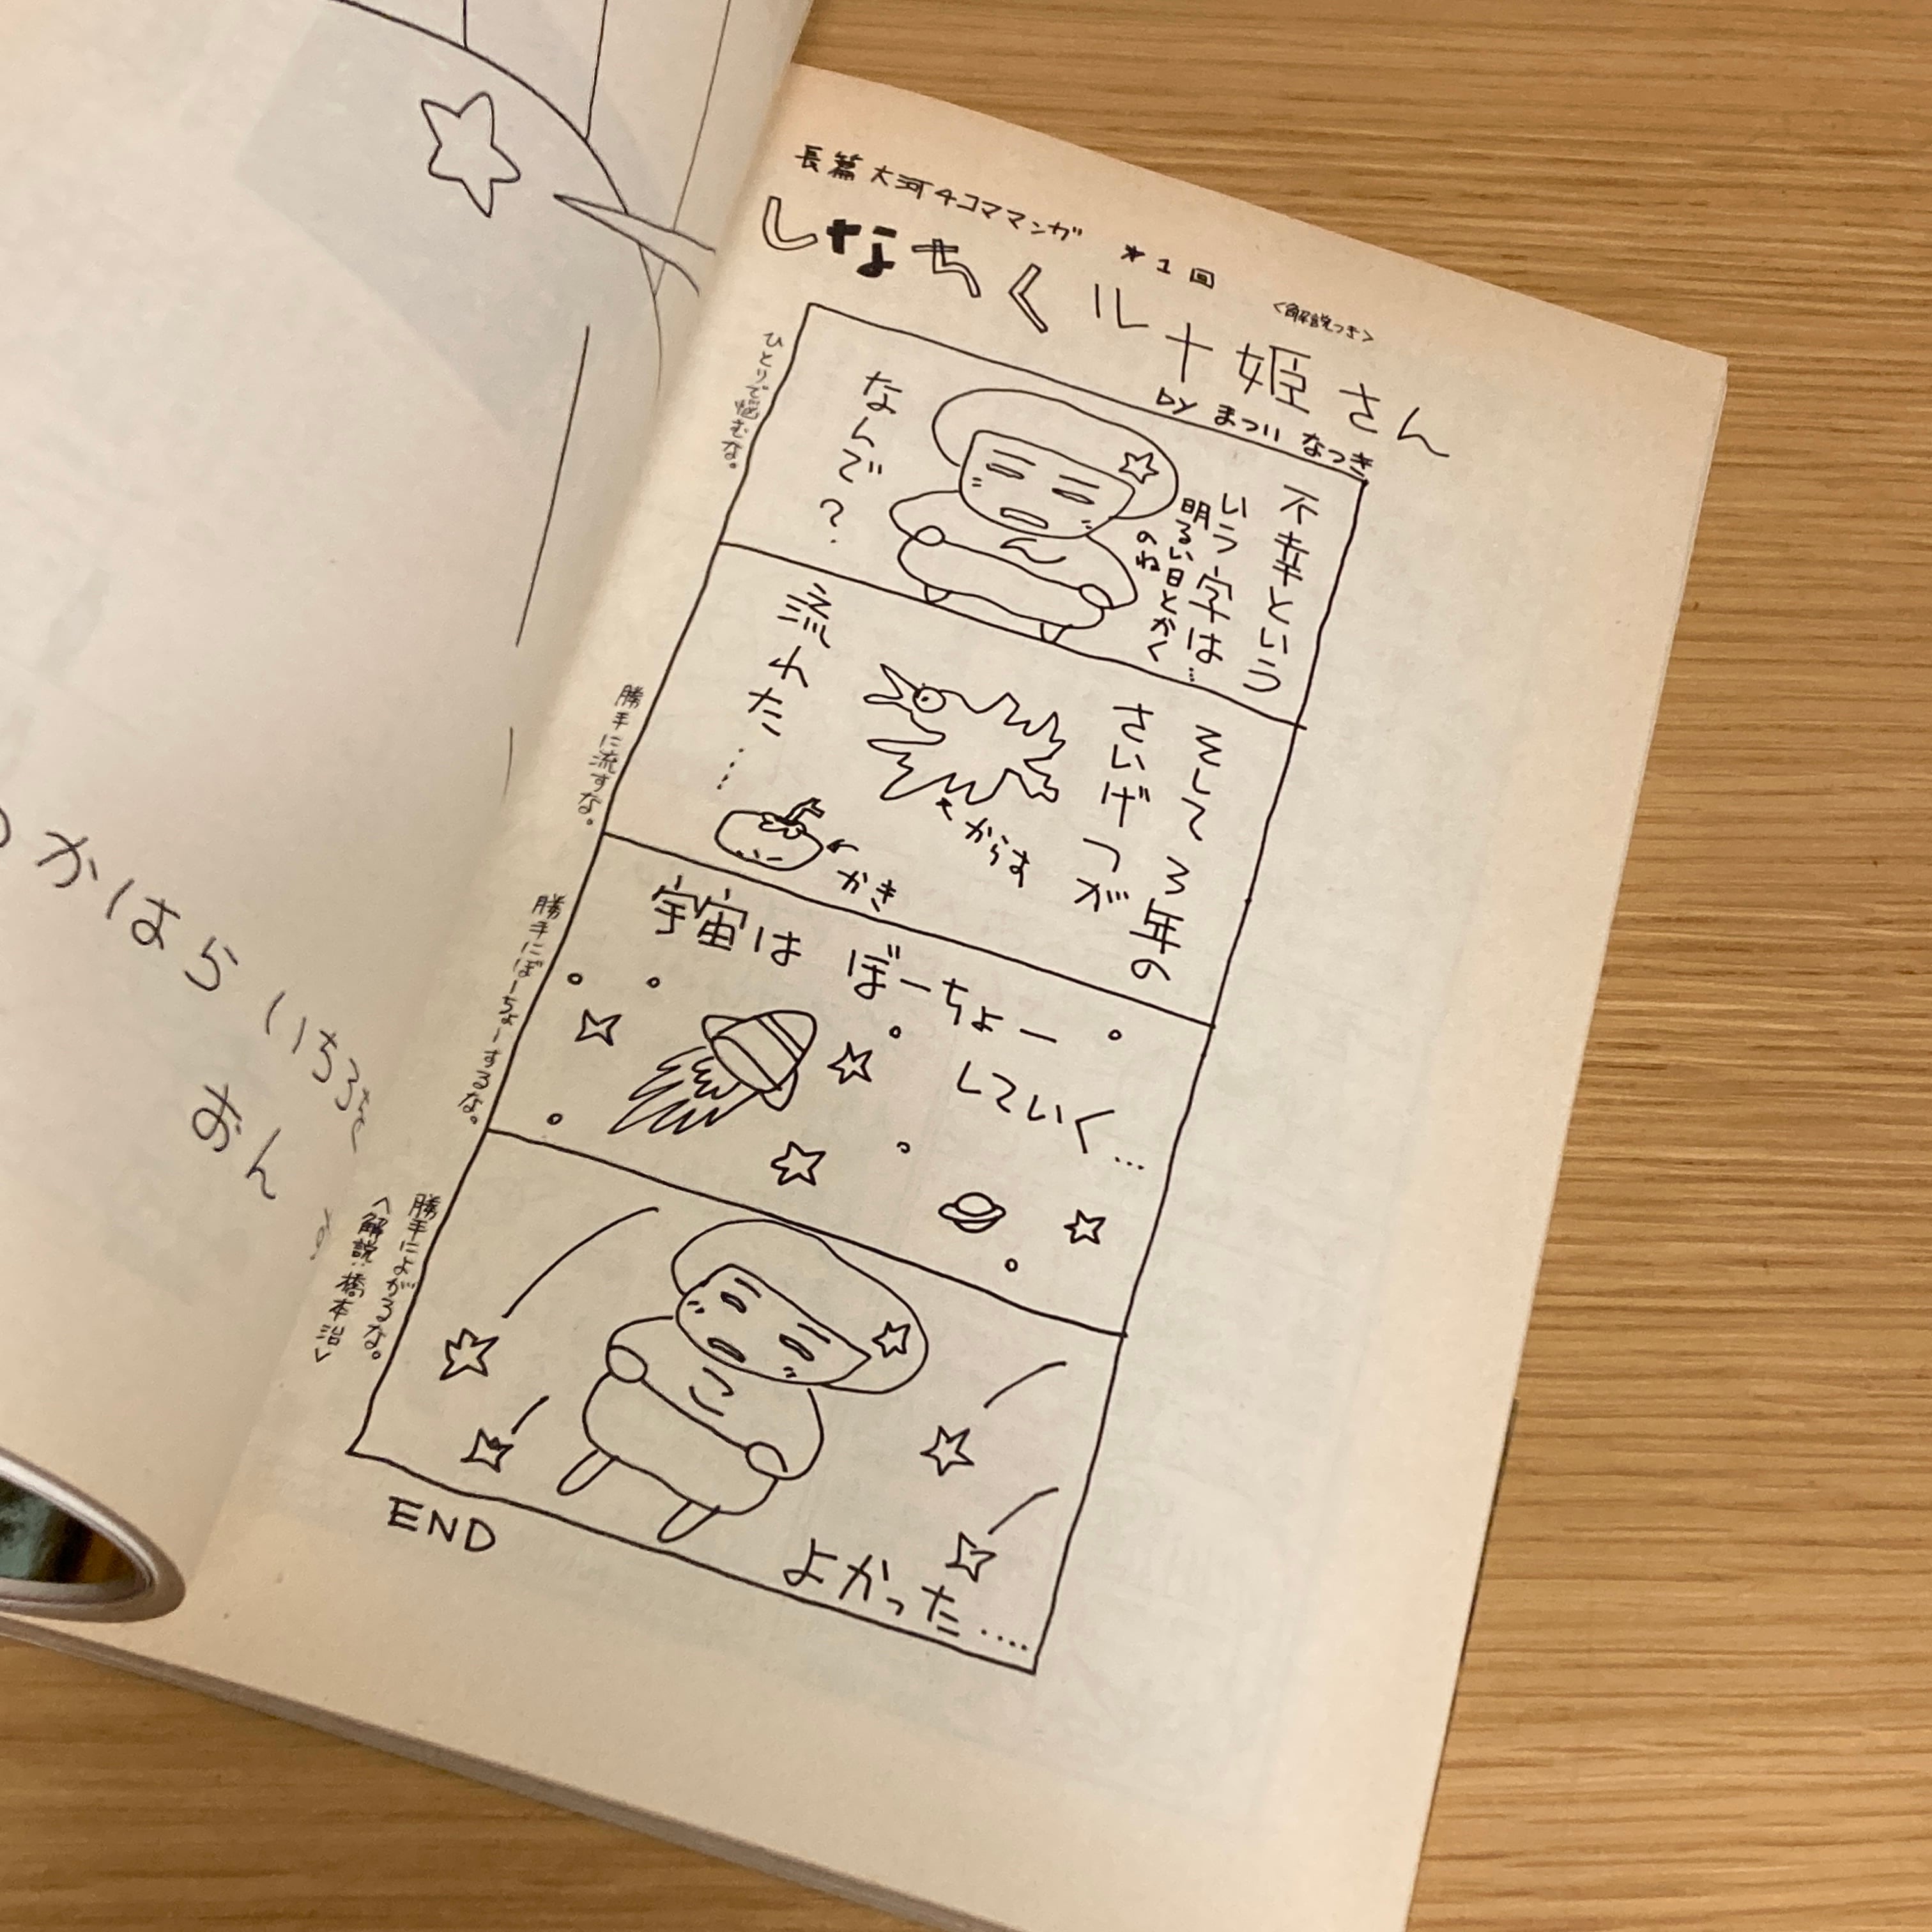 長篇大河4コママンガ *1回 <解説つき>
しなちくルナ姫さん
by まつい なつき
不幸という
いう字は…
明るい日とかく
のね
なんで?
ひとりで悩むな。
そして 3年の
さいげつが
流れた…
からす
かき
勝手に流すな。
宇宙は ぼーちょー
していく…
勝手にぼーちょーするな。
よかった….
勝手によがるな。
<解説:橋本治>
END
かはら いちろう
おん